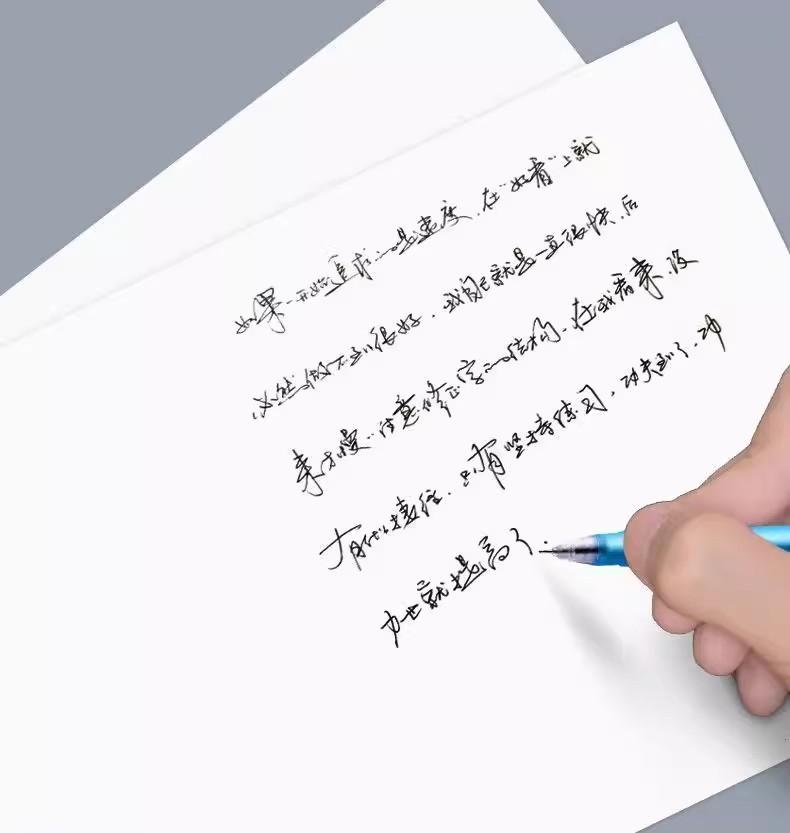 如果一开始追求的是速度，在“好看”上就
必然做不到很好，我自己就是一直很快，后
来才慢慢注意修正字的结构，在我看来，没
有什么捷径，只有坚持练习，功夫到了，功
力也就提高了.